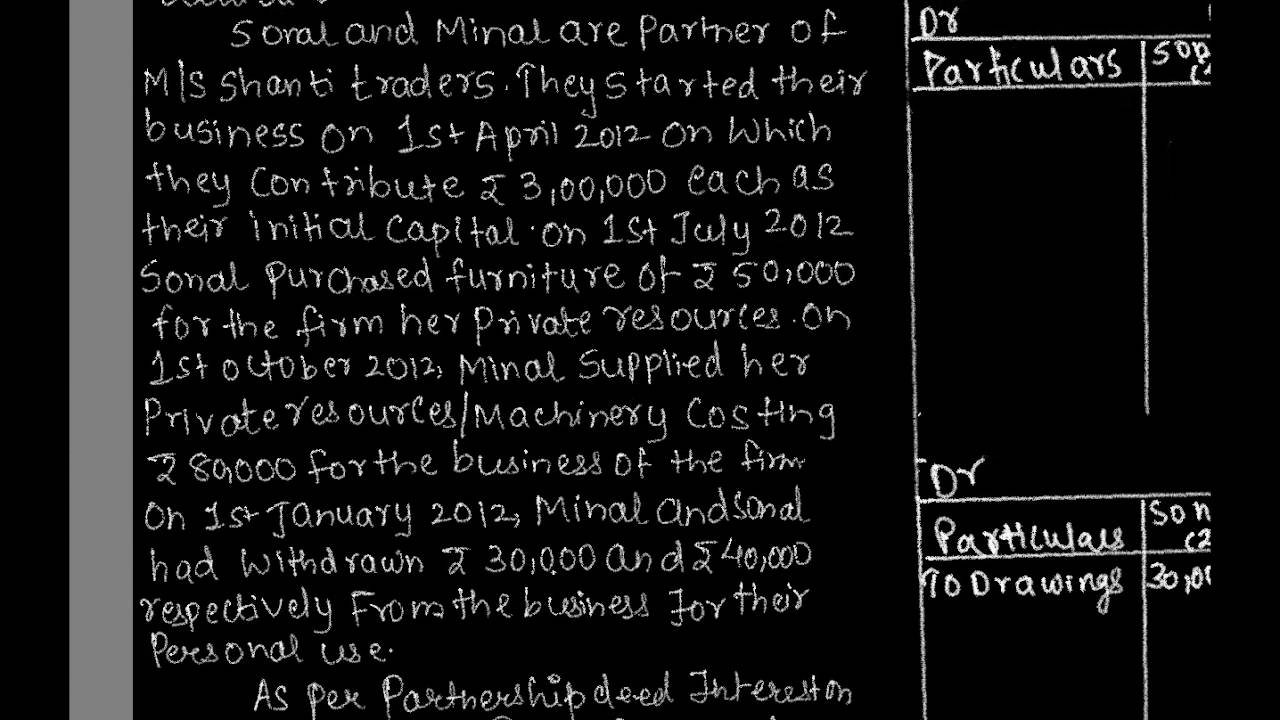 Sonal and Minal are Partner of
M/s Shanti traders. They started their
business on 1st April 2012 on which
they Contribute ₹ 3,00,000 each as
their initial Capital. on 1st July 2012
Sonal purchased furniture of ₹ 50,000
for the firm her private resources. On
1st october 2012, Minal Supplied her
Private resources/Machinery Costing
₹ 80,000 for the business of the firm
On 1st January 2012, Minal and Sonal
had withdrawn ₹ 30,000 and ₹ 40,000
respectively From the business for their
Personal use.
As per Partnership deed Interest on
Dr
Particulars
Dr
Particulars
To Drawings